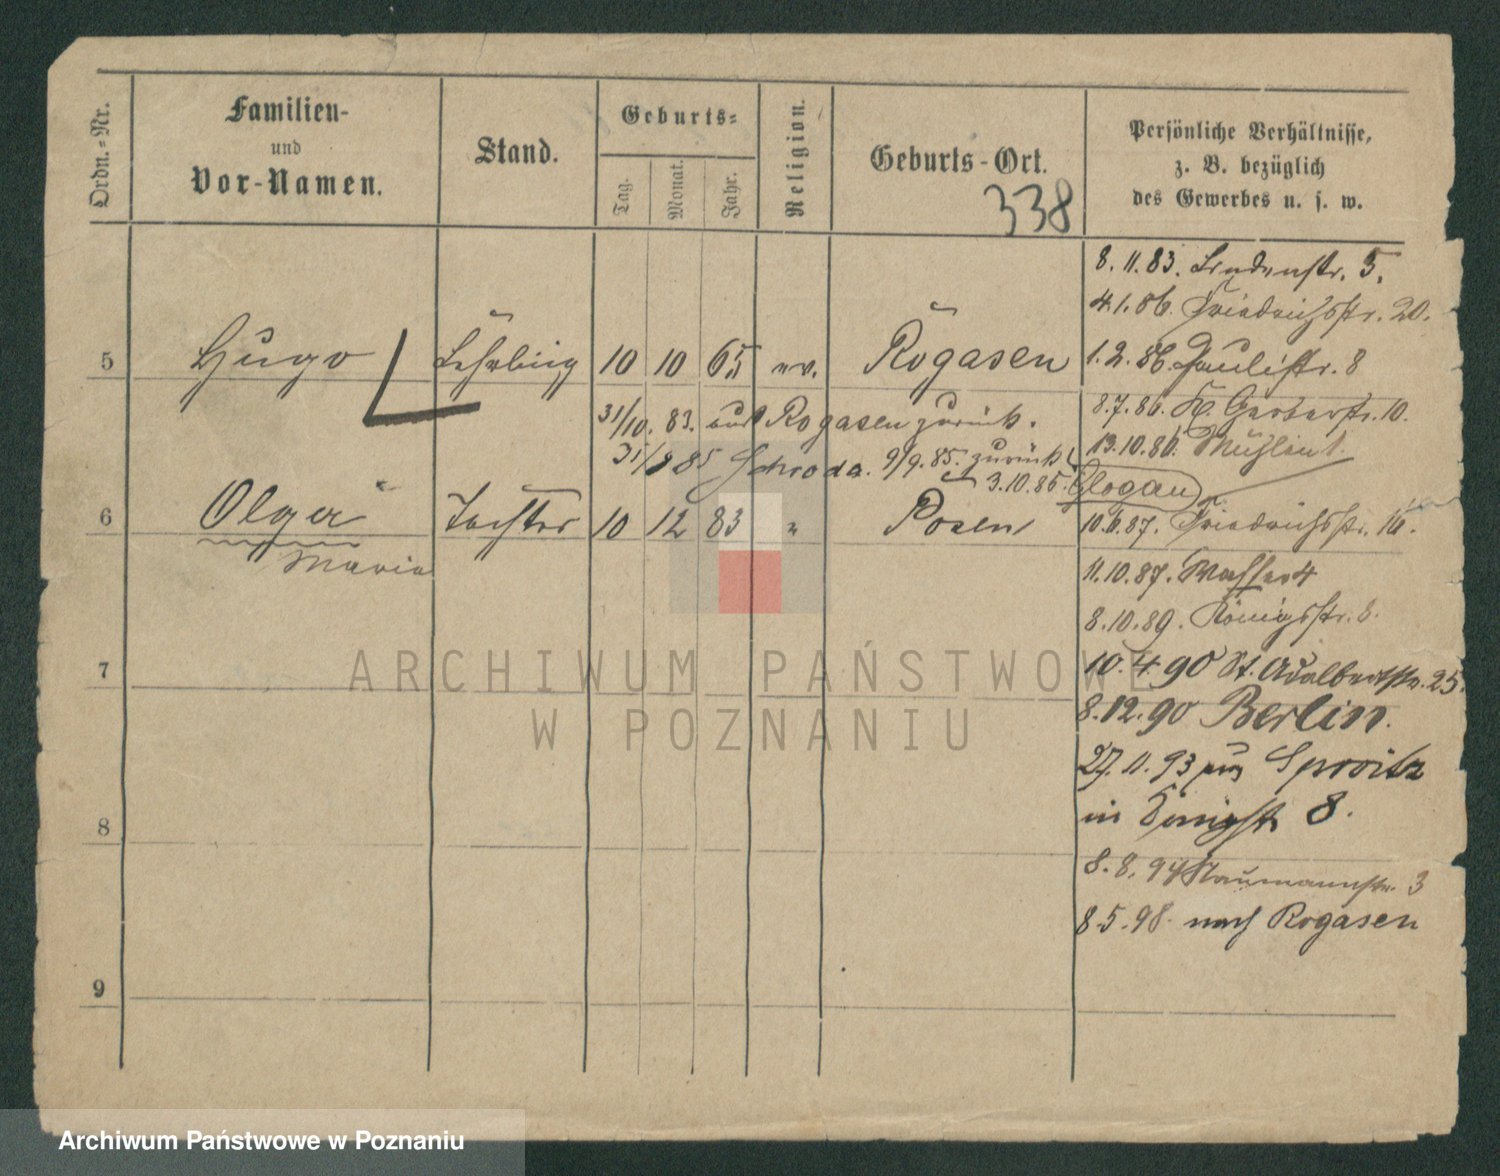 Ordn.-Nr.
Familien-
und
Vor-Namen.
Stand.
Geburts-
Tag.
Monat.
Jahr.
Religion.
Geburts-Ort.
338
Persönliche Verhältnisse,
z. B. bezüglich
des Gewerbes u. s. w.
8.11.83. Lindenstr. 5.
4.1.86. Friedrichsstr. 20.
5 Hugo Lehrling 10 10 65 ev. Rogasen
1.2.86. Paulistr. 8
31/10. 83. aus Rogasen zurück.
8.7.86. Kl. Gerberstr. 10.
85 Schroda. 9/9.85. zurück
13.10.86. Mühlenst.
3.10.85. Glogau
6 Olga Tochter 10 12 83 " Posen
10.6.87. Friedrichsstr. 16.
Maria
11.10.87. Wasser 4
8.10.89. Königsstr. 8.
7
10.4.90 St. Adalbertstr. 25.
8.12.90 Berlin.
27.11.93 aus Sproitz
in Königstr 8.
8
8.8.94 Naumannstr. 3
8.5.98. nach Rogasen
9
ARCHIWUM PAŃSTWOWE
W POZNANIU
Archiwum Państwowe w Poznaniu